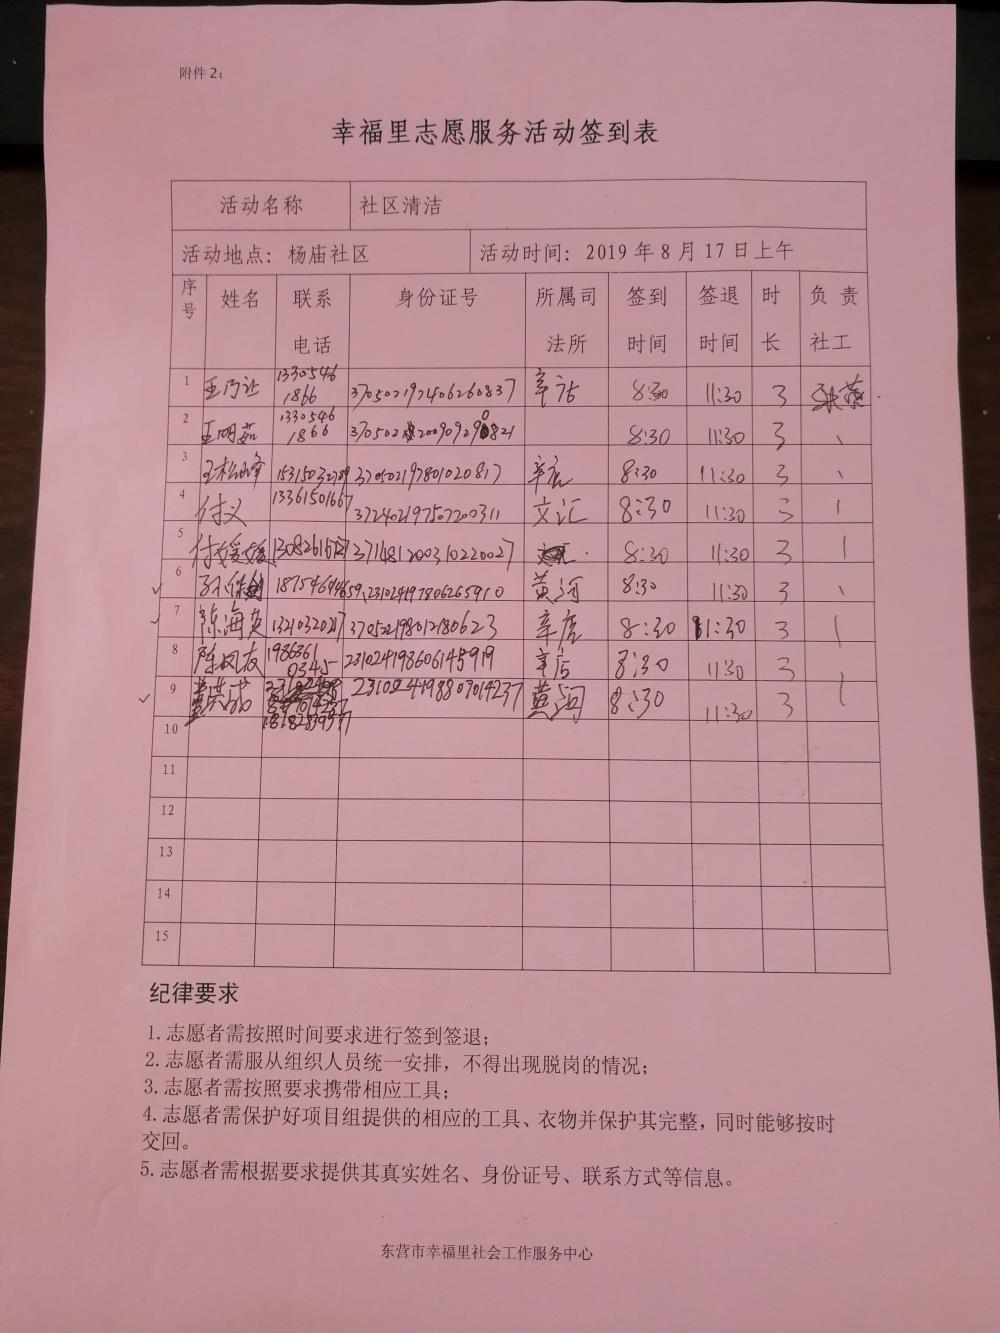 附件 2：
幸福里志愿服务活动签到表
活动名称 社区清洁
活动地点：杨庙社区 活动时间：2019 年 8 月 17 日上午
序号 姓名 联系电话 身份证号 所属司法所 签到时间 签退时间 时长 负责社工
1 1330546 1866 370502192406260837 辛店 8:30 11:30 3
2 王明茹 1330546 1866 8:30 11:30 3
3 王松峰 370502197801020817 辛店 8:30 11:30 3
4 付义 13361501667 372402197507200311 文汇 8:30 11:30 3
5 付媛媛 371481200310220027 8:30 11:30 3
6 18754644659 231024197806265910 黄河 8:30 11:30 3
7 陈海英 370522198012180623 辛店 8:30 11:30 3
8 陈凤友 1986361 0345 231024198606145919 辛店 8:30 11:30 3
9 231024198807014237 黄河 8:30 11:30 3
10
11
12
13
14
15
纪律要求
1.志愿者需按照时间要求进行签到签退；
2.志愿者需服从组织人员统一安排，不得出现脱岗的情况；
3.志愿者需按照要求携带相应工具；
4.志愿者需保护好项目组提供的相应的工具、衣物并保护其完整，同时能够按时
交回。
5.志愿者需根据要求提供其真实姓名、身份证号、联系方式等信息。
东营市幸福里社会工作服务中心